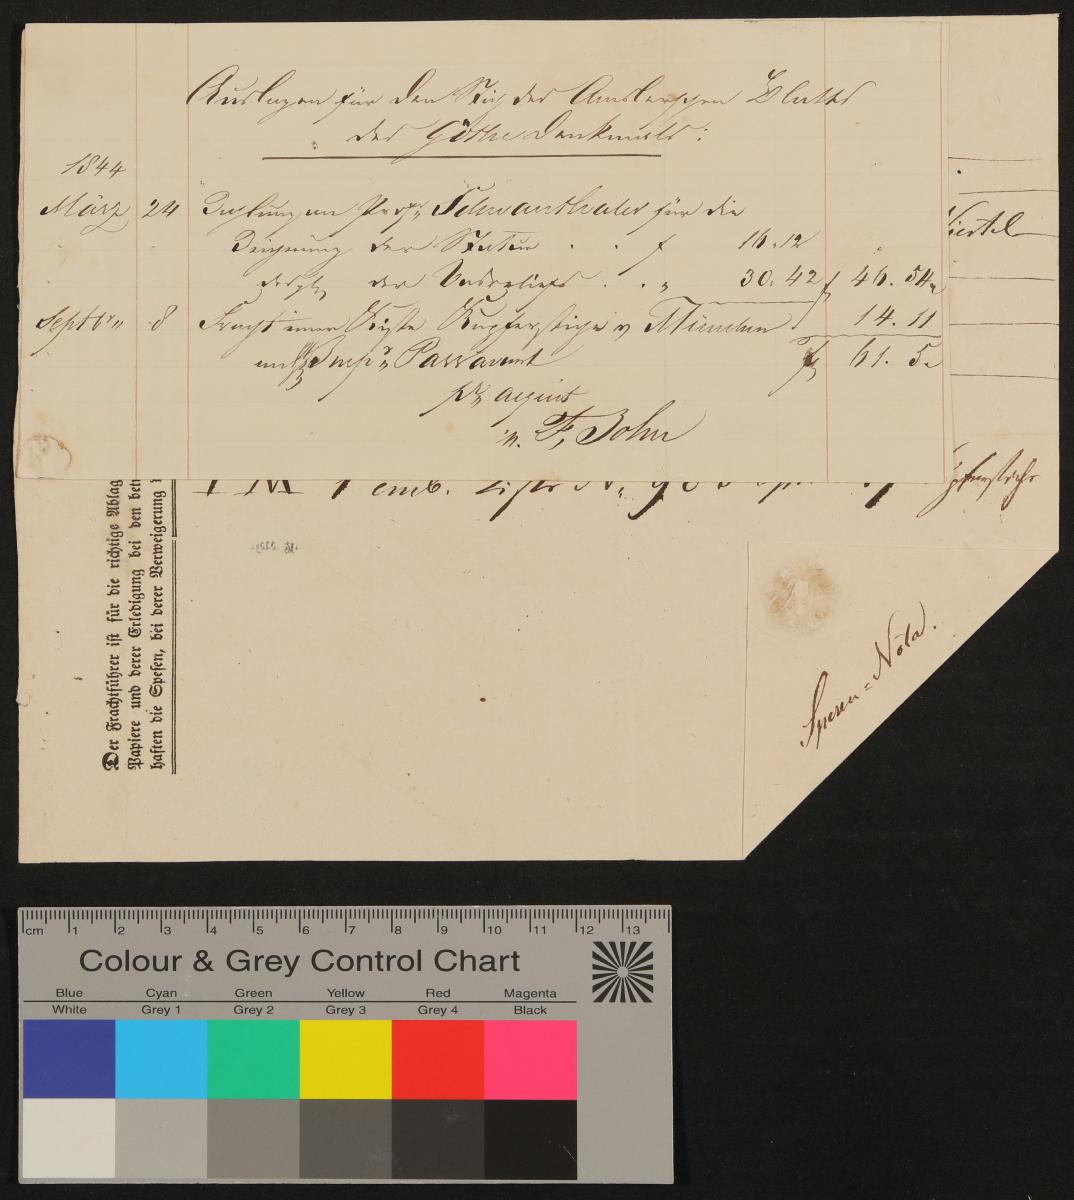 Auslagen für den Stich des Amslerschen Blattes
des Göthe Denkmals:
1844
März 24 Zahlung an Profr. Schwanthaler für die
Zeichnung der Statue . . f 16.12
desgl. der Basreliefs . . „ 30.42 f 46.54
Septbr. 8 Fracht einer Kiste Kupferstiche v München 14.11
an Inspr. Passavant f 61.5
pr. acquit
F. Bohn
Viertel
Kupferstiche
Der Frachtführer ist für die richtige Ablag
Papiere und derer Erledigung bei den betr
haften die Spesen, bei derer Verweigerung
Spesen=Nota.
cm 1 2 3 4 5 6 7 8 9 10 11 12 13
Colour & Grey Control Chart
Blue Cyan Green Yellow Red Magenta
White Grey 1 Grey 2 Grey 3 Grey 4 Black